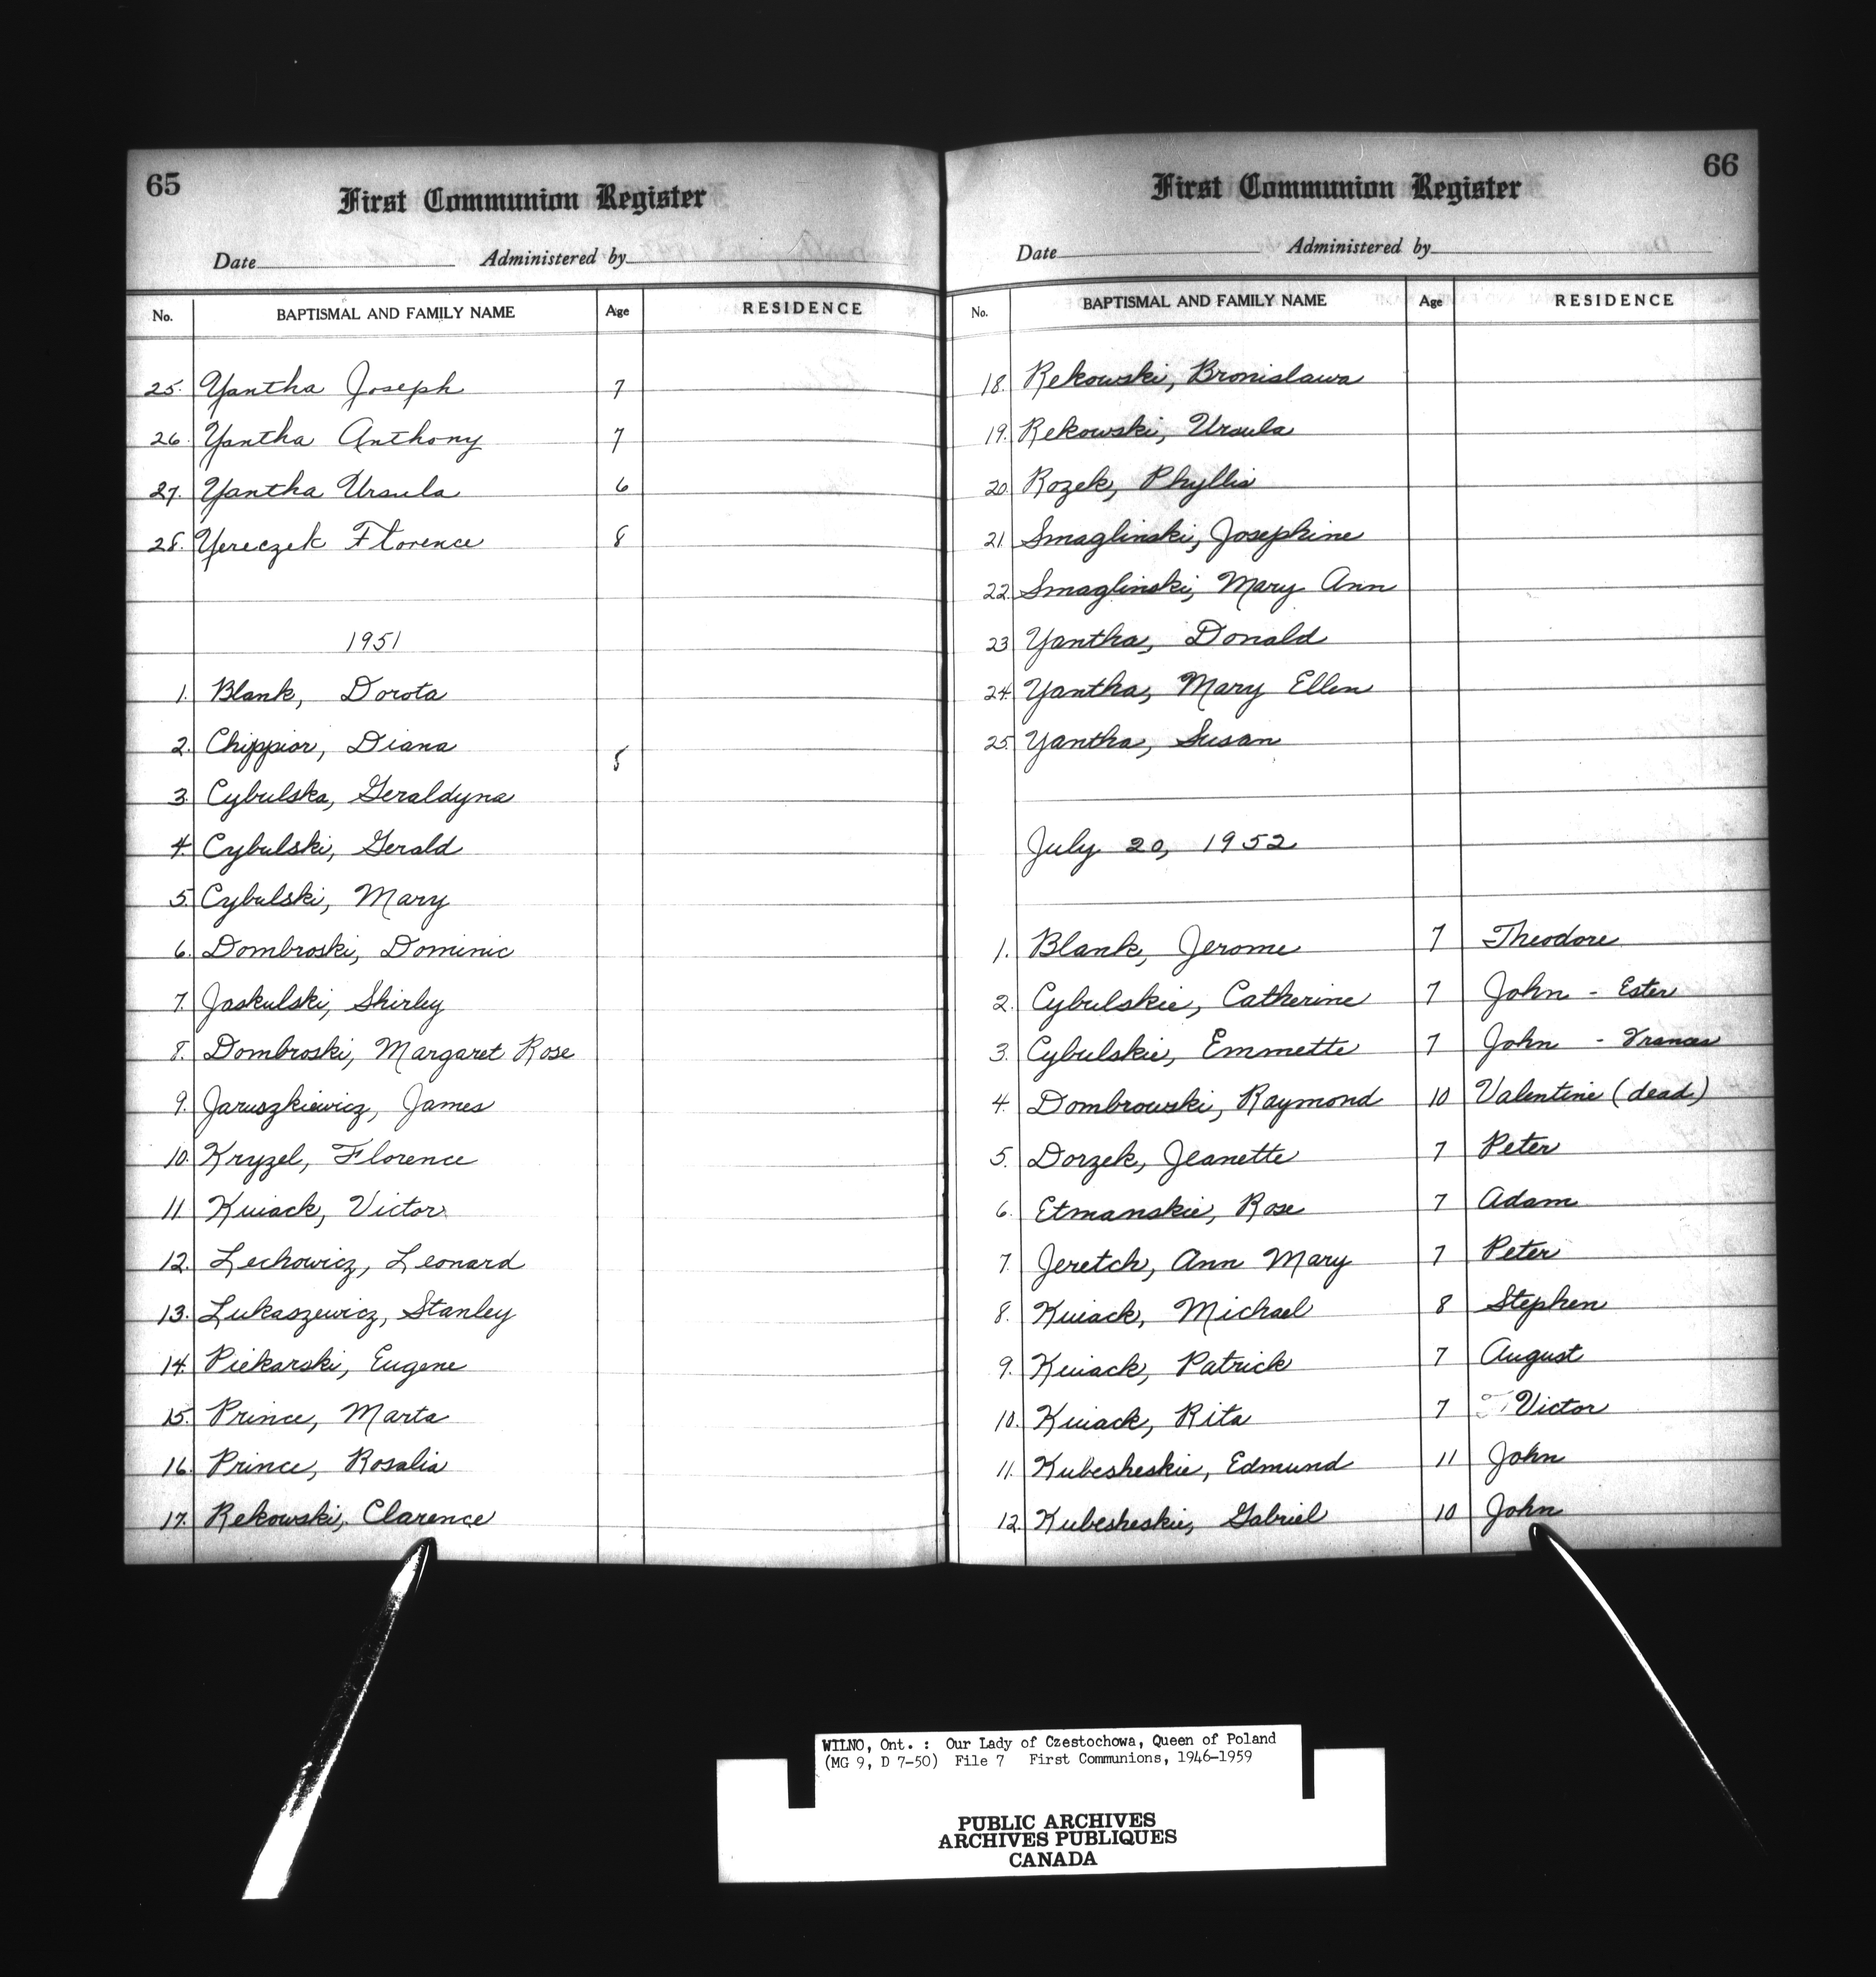 65
First Communion Register
Date Administered by
No. BAPTISMAL AND FAMILY NAME Age RESIDENCE
25. Yantha Joseph 7
26. Yantha Anthony 7
27. Yantha Ursula 6
28. Yereczek Florence 8
1951
1. Blank, Dorota
2. Chippior, Diana 8
3. Cybulska, Geraldyna
4. Cybulski, Gerald
5. Cybulski, Mary
6. Dombroski, Dominic
7. Jaskulski, Shirley
8. Dombroski, Margaret Rose
9. Jaruszkiewicz, James
10. Kryzel, Florence
11. Kuiack, Victor
12. Lechowicz, Leonard
13. Lukaszewicz, Stanley
14. Piekarski, Eugene
15. Prince, Marta
16. Prince, Rosalia
17. Rekowski, Clarence
66
First Communion Register
Date Administered by
No. BAPTISMAL AND FAMILY NAME Age RESIDENCE
18. Rekowski, Bronislawa
19. Rekowski, Ursula
20. Rozek, Phyllis
21. Smaglinski, Josephine
22. Smaglinski, Mary Ann
23 Yantha, Donald
24. Yantha, Mary Ellen
25. Yantha, Susan
July 20, 1952
1. Blank, Jerome 7 Theodore
2. Cybulskie, Catherine 7 John - Ester
3. Cybulskie, Emmette 7 John - Frances
4. Dombrowski, Raymond 10 Valentine (dead)
5. Dorzek, Jeanette 7 Peter
6. Etmanskie, Rose 7 Adam
7. Jeretch, Ann Mary 7 Peter
8. Kuiack, Michael 8 Stephen
9. Kuiack, Patrick 7 August
10. Kuiack, Rita 7 Victor
11. Kubesheskie, Edmund 11 John
12. Kubesheskie, Gabriel 10 John
WILNO, Ont. : Our Lady of Czestochowa, Queen of Poland
(MG 9, D 7-50) File 7 First Communions, 1946-1959
PUBLIC ARCHIVES
ARCHIVES PUBLIQUES
CANADA